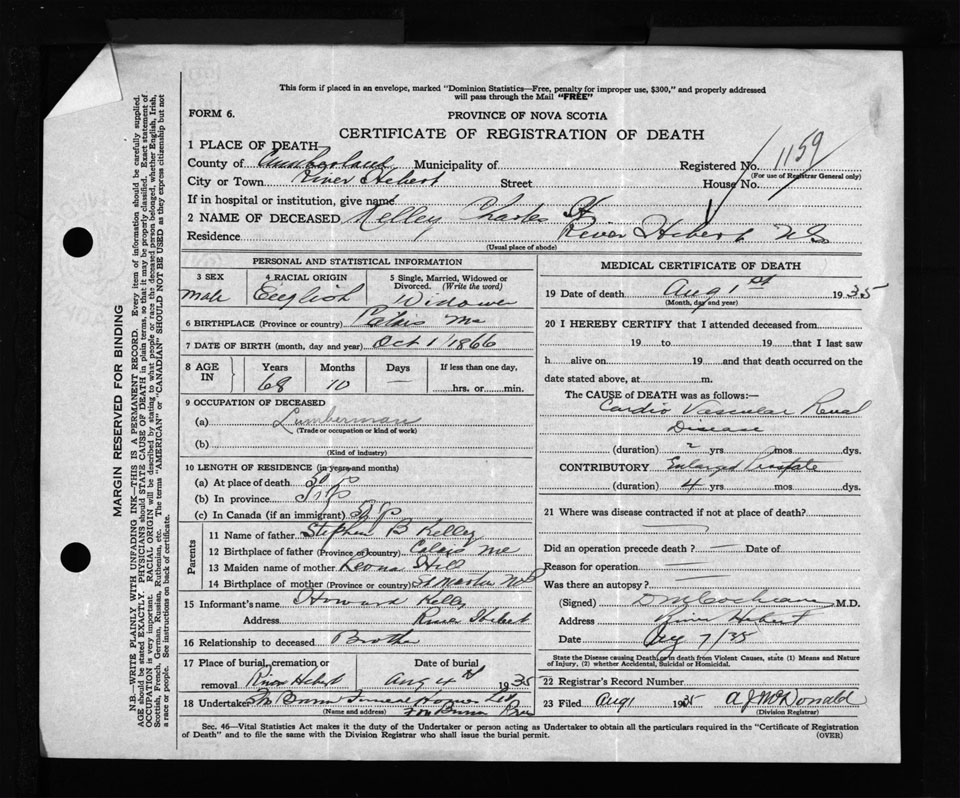 This form if placed in an envelope, marked "Dominion Statistics—Free, penalty for improper use, $300," and properly addressed
will pass through the Mail "FREE"
FORM 6.
PROVINCE OF NOVA SCOTIA
CERTIFICATE OF REGISTRATION OF DEATH
1 PLACE OF DEATH
County of Cumberland Municipality of Registered No. 1159
(For use of Registrar General only)
City or Town River Hebert Street House No.
If in hospital or institution, give name
2 NAME OF DECEASED Kelley Charles H
Residence River Hebert N S
(Usual place of abode)
PERSONAL AND STATISTICAL INFORMATION
3 SEX 4 RACIAL ORIGIN 5 Single, Married, Widowed or
Divorced. (Write the word)
male English Widower
6 BIRTHPLACE (Province or country) Calais Me
7 DATE OF BIRTH (month, day and year) Oct 1/1866
8 AGE IN Years Months Days If less than one day,
68 10 — hrs. or min.
9 OCCUPATION OF DECEASED
(a) Lumberman
(Trade or occupation or kind of work)
(b)
(Kind of industry)
10 LENGTH OF RESIDENCE (in years and months)
(a) At place of death
(b) In province
(c) In Canada (if an immigrant)
Parents
11 Name of father Stephen B Kelley
12 Birthplace of father (Province or country) Calais Me
13 Maiden name of mother Hill
14 Birthplace of mother (Province or country)
15 Informant's name Howard Kelley
Address River Hebert
16 Relationship to deceased Brother
17 Place of burial, cremation or Date of burial
removal River Hebert Aug 4th 1935
18 Undertaker
MEDICAL CERTIFICATE OF DEATH
19 Date of death Aug 1st 1935
(Month, day and year)
20 I HEREBY CERTIFY that I attended deceased from
19 to 19 that I last saw
h alive on 19 and that death occurred on the
date stated above, at m.
The CAUSE OF DEATH was as follows:
Cardio Vascular Renal
Disease
(duration) 2 yrs. mos. dys.
CONTRIBUTORY Enlarged Prostate
(duration) 4 yrs. mos. dys.
21 Where was disease contracted if not at place of death?
Did an operation precede death? — Date of
Reason for operation
Was there an autopsy?
(Signed) Cochran M.D.
Address River Hebert
Date Aug 7/35
State the Disease causing Death, or in death from Violent Causes, state (1) Means and Nature
of Injury, (2) whether Accidental, Suicidal or Homicidal.
22 Registrar's Record Number
23 Filed Aug 1935 A J McDonald
(Division Registrar)
Sec. 46—Vital Statistics Act makes it the duty of the Undertaker or person acting as Undertaker to obtain all the particulars required in the "Certificate of Registration
of Death" and to file the same with the Division Registrar who shall issue the burial permit. (OVER)
MARGIN RESERVED FOR BINDING
N.B.—WRITE PLAINLY WITH UNFADING INK—THIS IS A PERMANENT RECORD. Every item of information should be carefully supplied.
AGE should be stated EXACTLY. PHYSICIANS should STATE CAUSE OF DEATH in plain terms, so that it may be properly classified. Exact statement of
OCCUPATION is very important. RACIAL ORIGIN will be described by stating to what people or race the deceased person belonged, whether English, Irish,
Scottish, French, German, Russian, Ruthenian, etc. The terms "AMERICAN" or "CANADIAN" SHOULD NOT BE USED as they express citizenship but not
a race or people. See instructions on back of certificate.